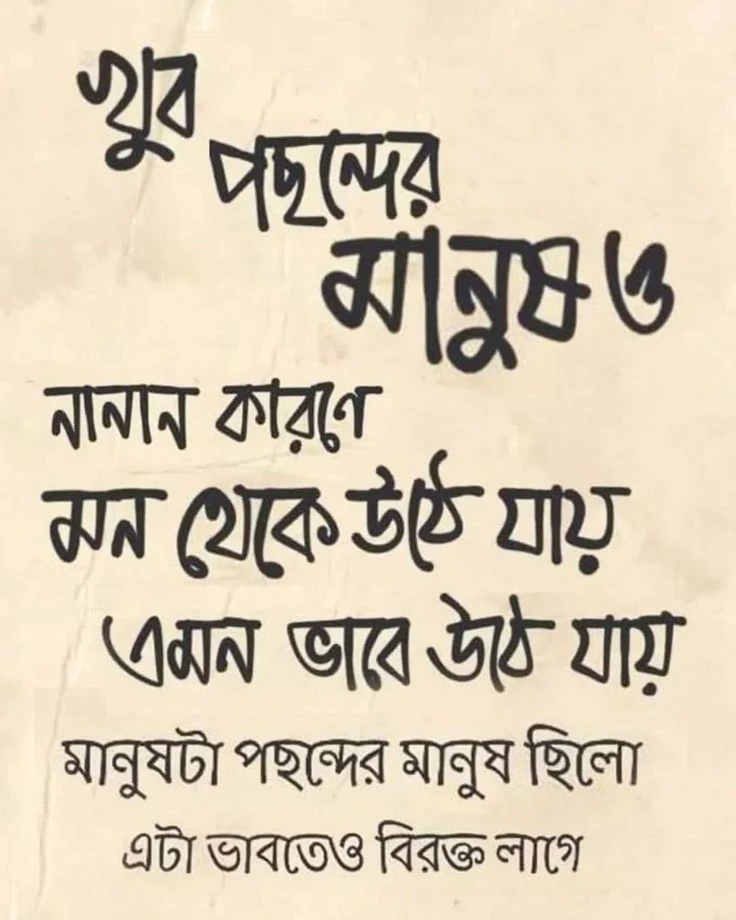 খুব
পছন্দের
মানুষ ও
নানান কারণে
মন থেকে উঠে যায়
এমন ভাবে উঠে যায়
মানুষটা পছন্দের মানুষ ছিলো
এটা ভাবতেও বিরক্ত লাগে